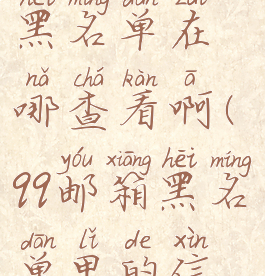 hēi míng dān zài
黑名单在
nǎ chá kàn ā
哪查看啊(
yóu xiāng hēi míng
99邮箱黑名
dān lǐ de xìn
单里的信